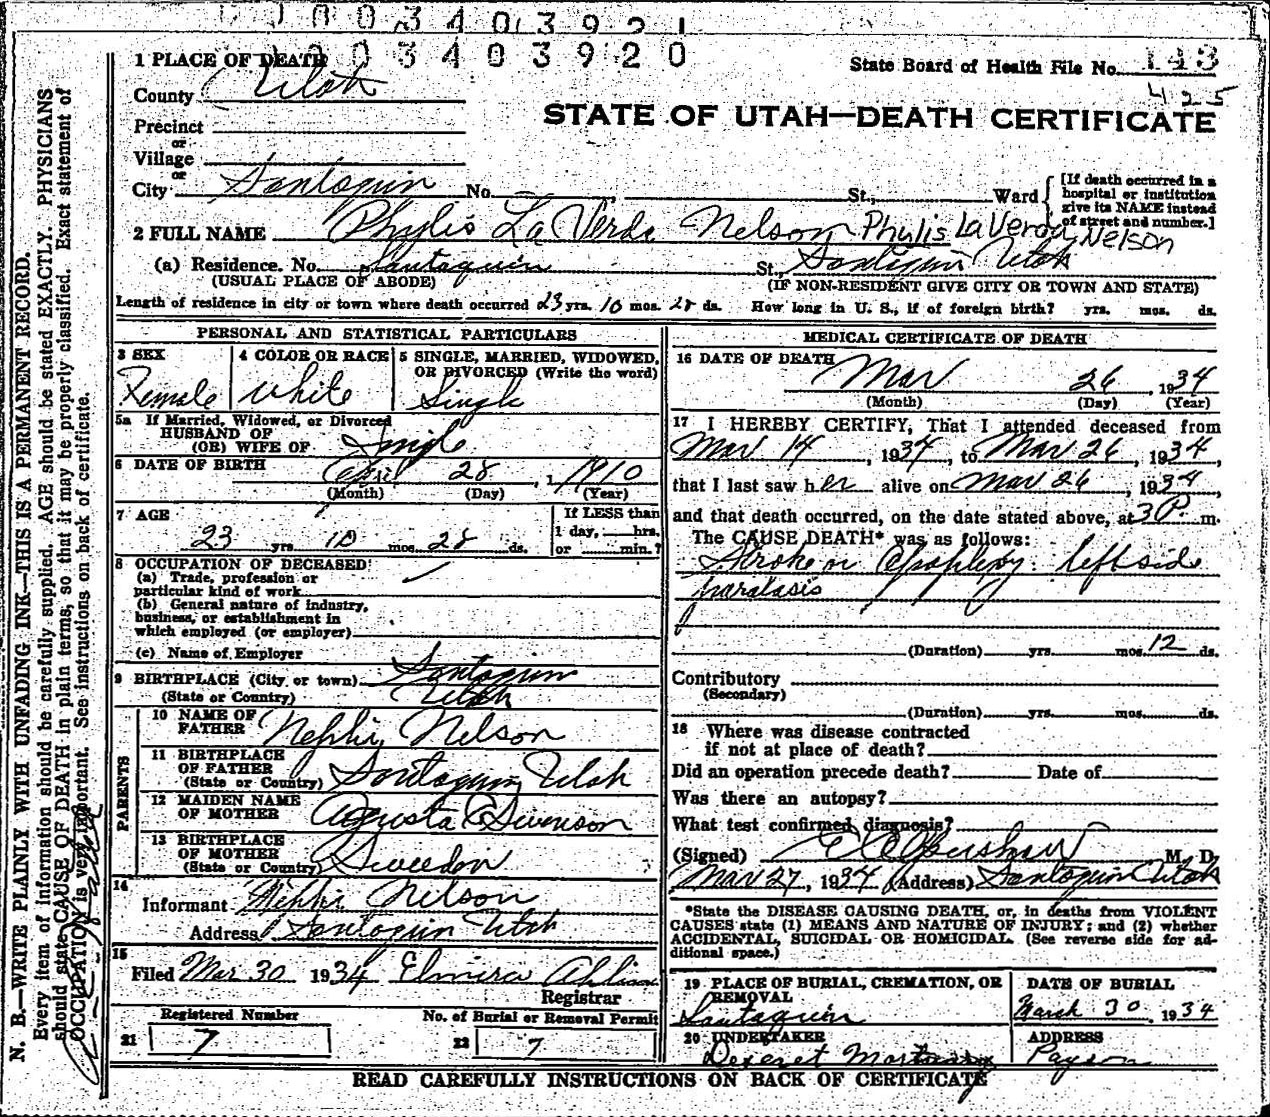 1003403921
1003403920
1 PLACE OF DEATH
State Board of Health File No. 143
425
County Utah
STATE OF UTAH—DEATH CERTIFICATE
Precinct
or
Village
or
City Santaquin No. St., Ward
[If death occurred in a hospital or institution give its NAME instead of street and number.]
2 FULL NAME Phylis La Verde Nelson Phylis LaVerda Nelson
(a) Residence. No. Santaquin St., Santaquin Utah
(USUAL PLACE OF ABODE) (IF NON-RESIDENT GIVE CITY OR TOWN AND STATE)
Length of residence in city or town where death occurred 23 yrs. 10 mos. 28 ds. How long in U. S., if of foreign birth? yrs. mos. ds.
PERSONAL AND STATISTICAL PARTICULARS
3 SEX Female
4 COLOR OR RACE White
5 SINGLE, MARRIED, WIDOWED, OR DIVORCED (Write the word)
Single
5a If Married, Widowed, or Divorced
HUSBAND OF
(OR) WIFE OF Single
6 DATE OF BIRTH April 28, 1910
(Month) (Day) (Year)
7 AGE
23 yrs. 10 mos. 28 ds.
If LESS than
1 day, hrs.
or min.?
8 OCCUPATION OF DECEASED
(a) Trade, profession or
particular kind of work
(b) General nature of industry,
business, or establishment in
which employed (or employer)
(c) Name of Employer
9 BIRTHPLACE (City or town) Santaquin
(State or Country) Utah
PARENTS
10 NAME OF
FATHER Nephi Nelson
11 BIRTHPLACE
OF FATHER
(State or Country) Santaquin Utah
12 MAIDEN NAME
OF MOTHER Augusta C Swenson
13 BIRTHPLACE
OF MOTHER
(State or Country) Sweedon
14
Informant Nephi Nelson
Address Santaquin Utah
15
Filed Mar 30 1934 Elmira
Registrar
Registered Number No. of Burial or Removal Permit
21 7 22 7
MEDICAL CERTIFICATE OF DEATH
16 DATE OF DEATH
Mar 26, 1934
(Month) (Day) (Year)
17 I HEREBY CERTIFY, That I attended deceased from
Mar 14, 1934, to Mar 26, 1934,
that I last saw her alive on Mar 26, 1934,
and that death occurred, on the date stated above, at 3 P m.
The CAUSE DEATH* was as follows:
Stroke or Apoplexy. left side
paralasis
(Duration) yrs. mos. 12 ds.
Contributory
(Secondary)
(Duration) yrs. mos. ds.
18 Where was disease contracted
if not at place of death?
Did an operation precede death? Date of
Was there an autopsy?
What test confirmed diagnosis?
(Signed) M. D.
Mar 27, 1934 (Address) Santaquin Utah
*State the DISEASE CAUSING DEATH, or, in deaths from VIOLENT
CAUSES state (1) MEANS AND NATURE OF INJURY; and (2) whether
ACCIDENTAL, SUICIDAL OR HOMICIDAL. (See reverse side for ad-
ditional space.)
19 PLACE OF BURIAL, CREMATION, OR
REMOVAL
Santaquin
DATE OF BURIAL
March 30, 1934
20 UNDERTAKER
Deseret Mortuary
ADDRESS
Payson
READ CAREFULLY INSTRUCTIONS ON BACK OF CERTIFICATE
N. B.—WRITE PLAINLY WITH UNFADING INK—THIS IS A PERMANENT RECORD.
Every item of information should be carefully supplied. AGE should be stated EXACTLY. PHYSICIANS
should state CAUSE OF DEATH in plain terms, so that it may be properly classified. Exact statement of
OCCUPATION is very important. See instructions on back of certificate.